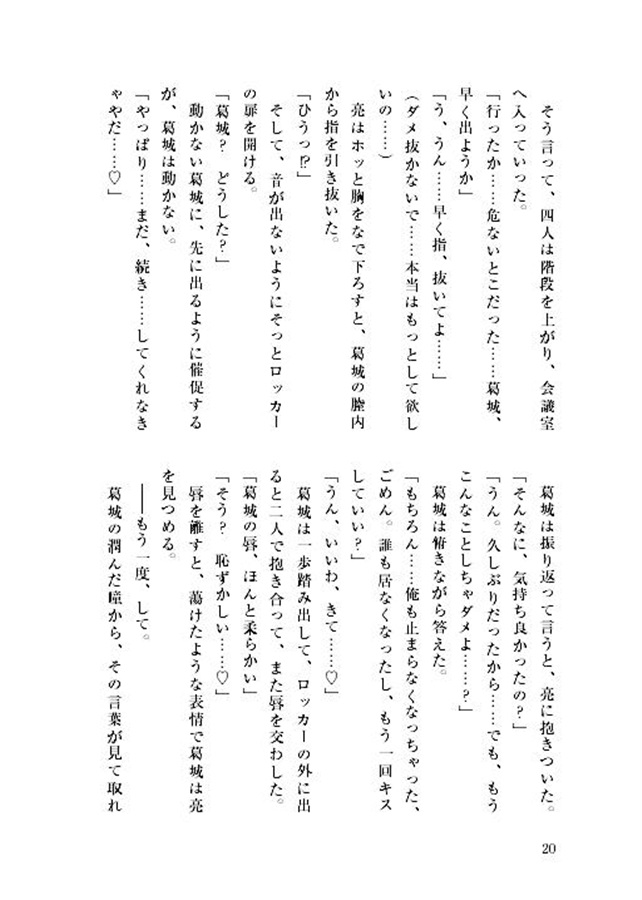 そう言って、四人は階段を上がり、会議室
へ入っていった。
「行ったか……危ないとこだった……葛城、
早く出ようか」
「う、うん……早く指、抜いてよ……」
（ダメ抜かないで……本当はもっとして欲し
いの……）
亮はホッと胸をなで下ろすと、葛城の膣内
から指を引き抜いた。
「ひうっ!?」
そして、音が出ないようにそっとロッカー
の扉を開ける。
「葛城？　どうした？」
動かない葛城に、先に出るように催促する
が、葛城は動かない。
「やっぱり……まだ、続き……してくれなき
ゃやだ……♡」
葛城は振り返って言うと、亮に抱きついた。
「そんなに、気持ち良かったの？」
「うん。久しぶりだったから……でも、もう
こんなことしちゃダメよ……？」
葛城は俯きながら答えた。
「もちろん……俺も止まらなくなっちゃった、
ごめん。誰も居なくなったし、もう一回キス
していい？」
「うん、いいわ、きて……♡」
葛城は一歩踏み出して、ロッカーの外に出
ると二人で抱き合って、また唇を交わした。
「葛城の唇、ほんと柔らかい」
「そう？　恥ずかしい……♡」
唇を離すと、蕩けたような表情で葛城は亮
を見つめる。
――もう一度、して。
葛城の潤んだ瞳から、その言葉が見て取れ
20